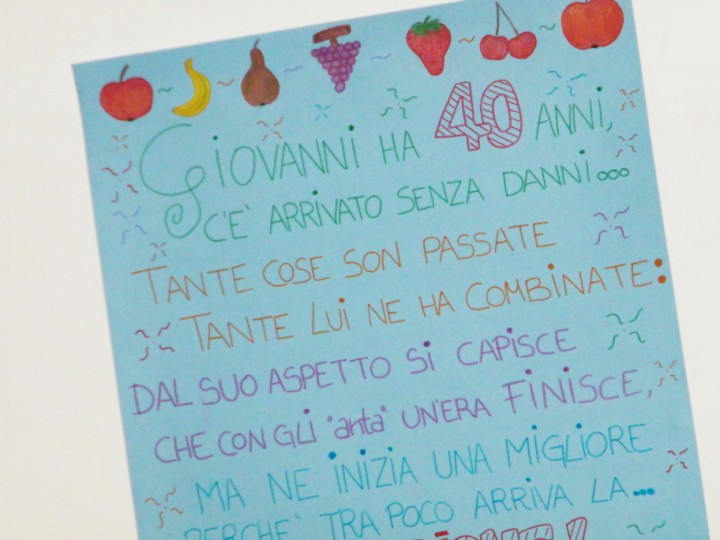 GiOVANNi HA 40 ANNi,
C'E' ARRiVATO SENZA DANNi...
TANTE COSE SON PASSATE
TANTE LUi NE HA COMBiNATE:
DAL SUO ASPETTO Si CAPiSCE
CHE CON GLi "anta" UN'ERA FiNiSCE,
MA NE iNiZiA UNA MiGLiORE
PERCHE' TRA POCO ARRiVA LA...